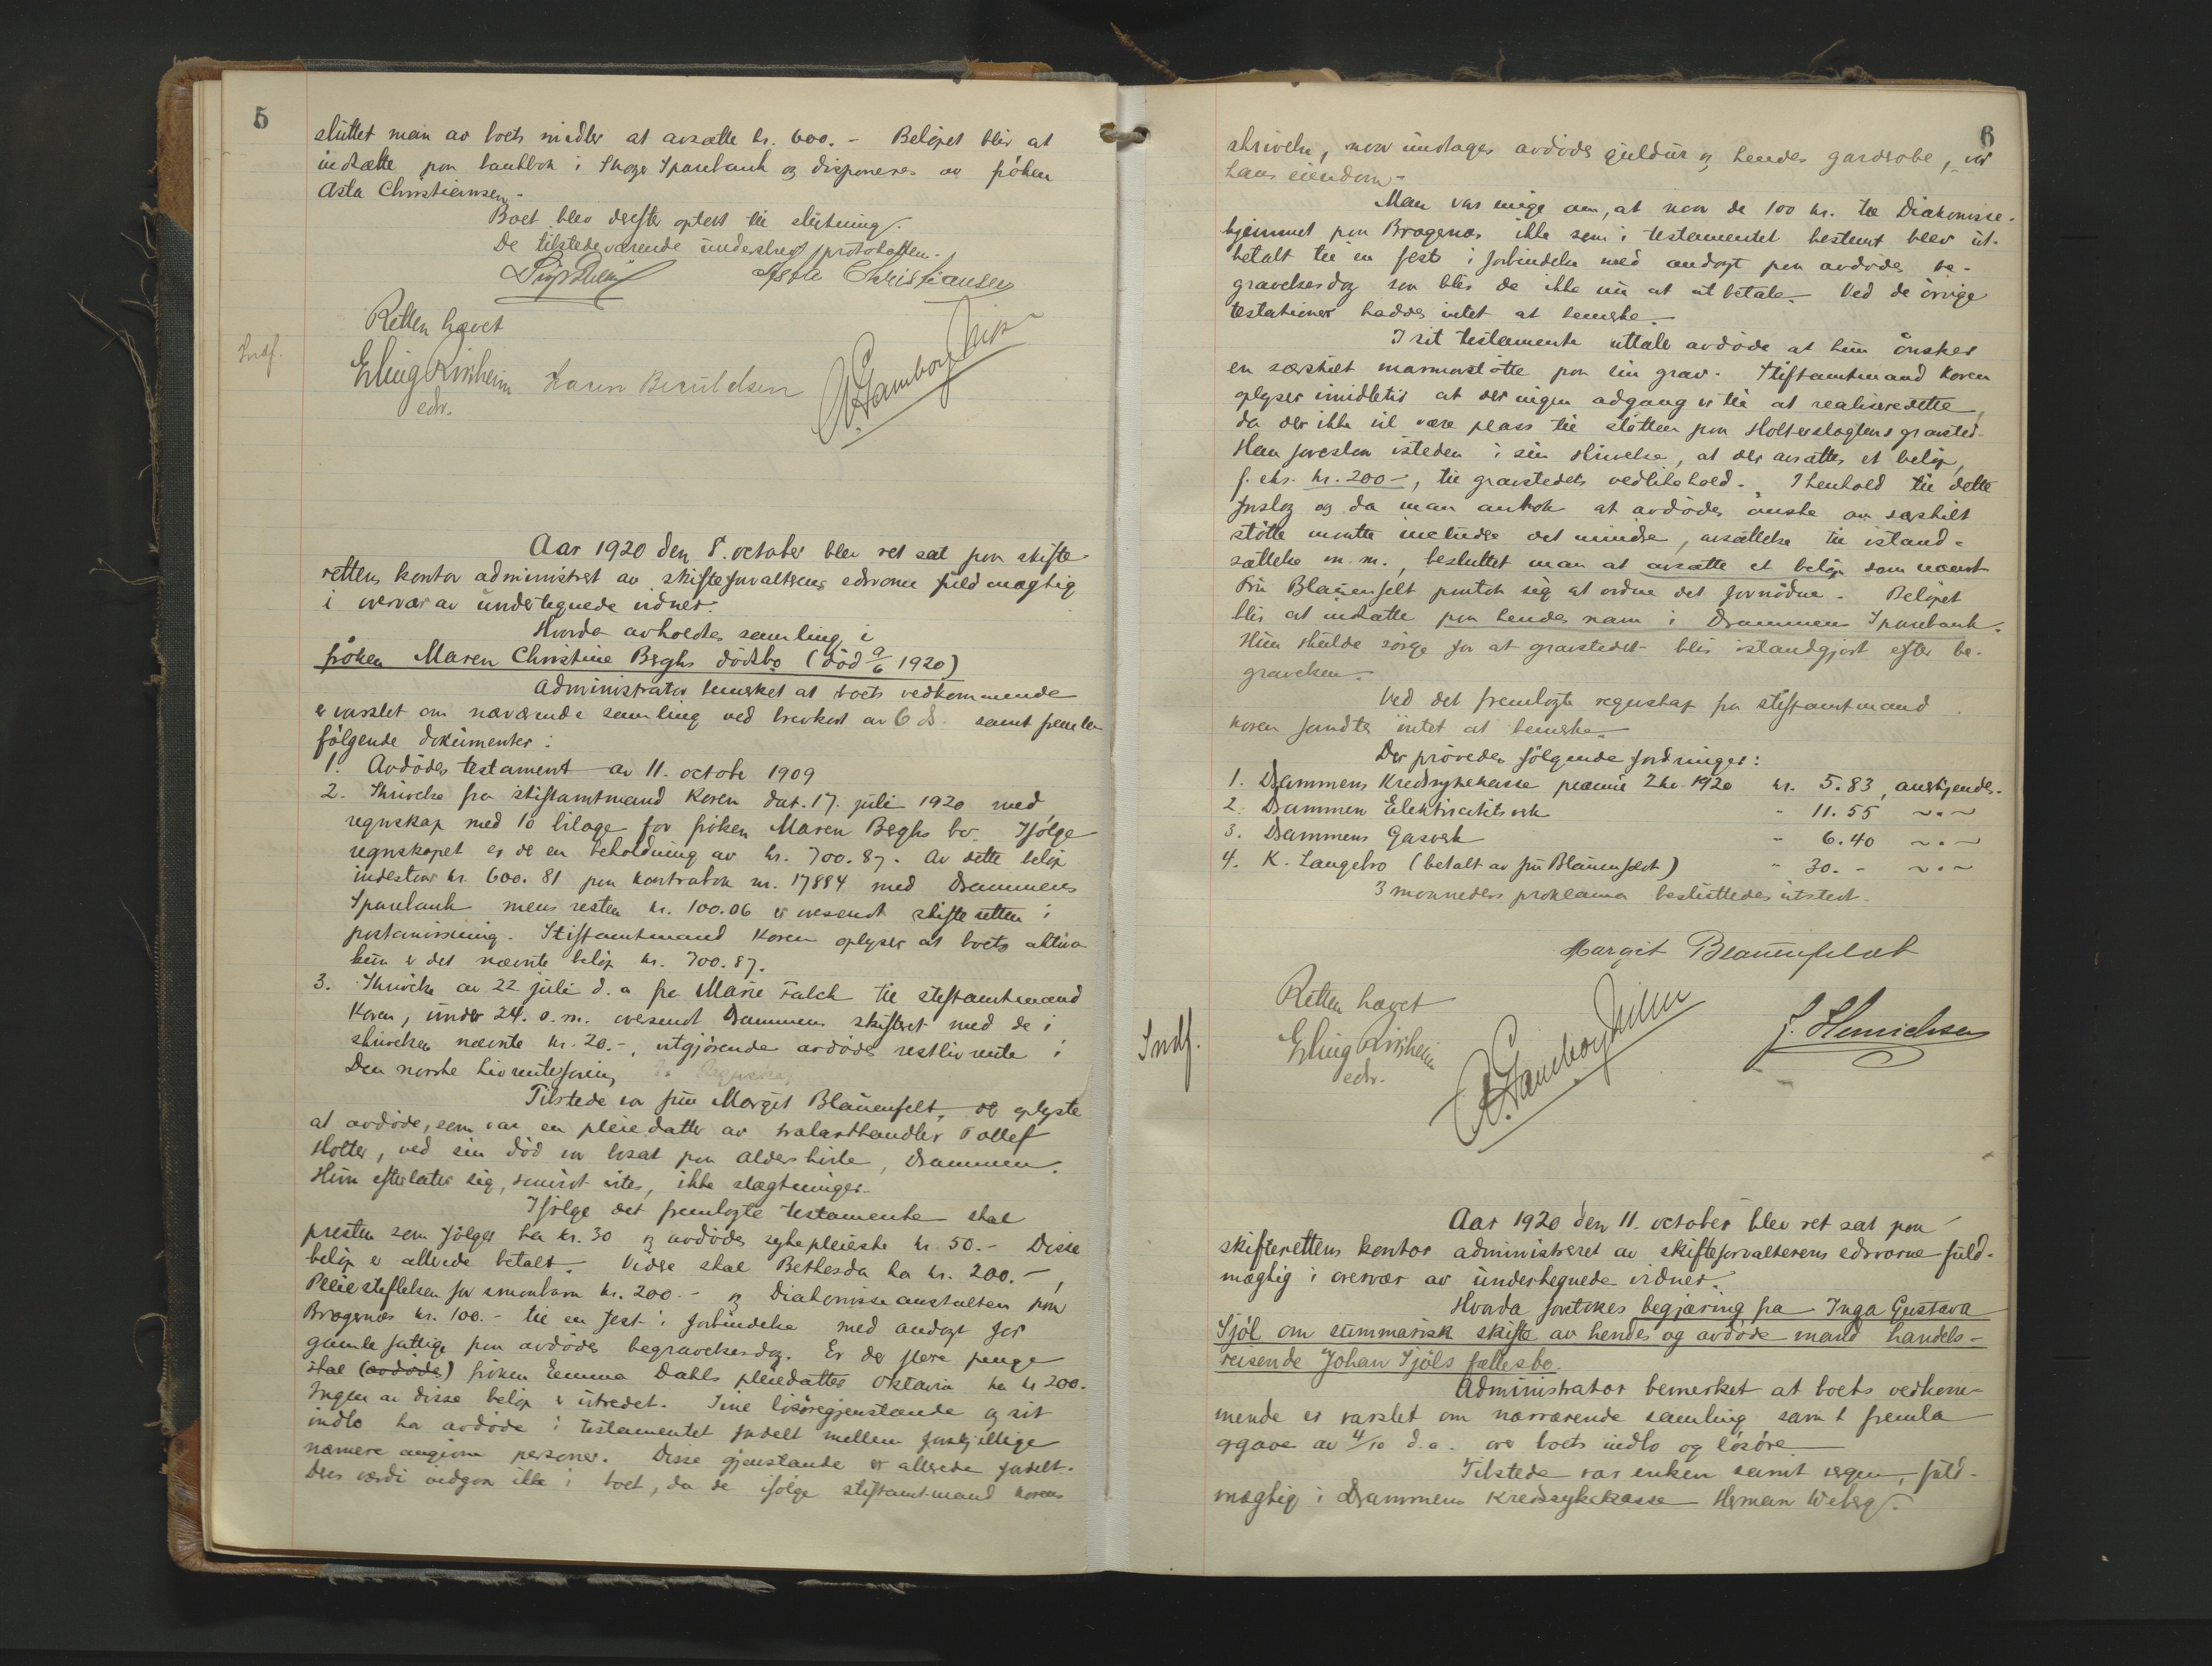 5
sluttet man av boets midler at avsætte kr. 600.- Beløpet blir at
indsætte paa bankbok i Skoger Sparebank og disponeres av frøken
Asta Christiansen.-
Boet blev derefter optat til slutning.
De tilstedeværende underskrev protokollen.
Asta Christiansen
Retten hævet
Indf.
Erling Kirsheim Karen Bernildsen
edv.
Aar 1920 den 8. october blev ret sat paa skifte-
rettens kontor administrert av skifteforvalterens edsvorne fuldmægtig
i overvær av undertegnede vidner.
Hvorda avholdtes samling i
frøken Maren Christine Berghs dødsbo (død 9/6 1920)
Administrator bemerket at boets vedkommende
er varslet om nærværende samling ved brevkort av 6 ds. samt fremla
følgende dokumenter:
1. Avdødes testament av 11. octobr 1909
2. Skrivelse fra stiftamtmand Koren dat. 17. juli 1920 med
regnskap med 10 bilage for frøken Maren Berghs bo. Ifølge
regnskapet er der en beholdning av kr. 700.87. Av dette beløp
indestaar kr. 600.81 paa kontrabok nr. 17884 med Drammens
Sparebank mens resten kr. 100.06 er oversendt skifteretten i
postanvisning. Stiftamtmand Koren oplyser at boets aktiva
kun er det nævnte beløp kr. 700.87.
3. Skrivelse av 22. juli d.a. fra Marie Falch til stiftamtmand
Koren, under 24. s.m. oversendt Drammens skifteret med de i
skrivelsen nævnte kr. 20.-, utgjørende avdødes restlivrente i
Den norske livrenteforening
Tilstede var fru Margit Blauenfelt, og oplyste
at avdøde, som var en pleiedatter av trælasthandler Tollef
Holter, ved sin død var bosat paa Aldershvile, Drammen.
Hun efterlater sig, saavidt vites, ikke slægtninger.
Ifølge det fremlagte testamente skal
presten som følger ha kr. 30 og avdødes sykepleierske kr. 50.- Disse
beløp er allerede betalt. Videre skal Bethesda ha kr. 200.-,
Pleiestiftelsen for smaabarn kr. 200.- og Diakonisseanstalten paa
Bragernæs kr. 100.- til en fest i forbindelse med andagt for
gamle fattige paa avdødes begravelsesdag. Er der flere penge
skal (avdøde) frøken Emma Dahls pleiedatter Oktavia ha kr 200.
Ingen av disse beløp er utredet. Sine løsøregjenstande og sit
indbo ha avdøde i testamentet fordelt mellem forskjellige
nærmere angivne personer. Disse gjenstande er allerede fordelt.
Deres værdi indgaar ikke i boet, da de ifølge stiftamtmand Korens
6
skrivelse, naar undtages avdødes guldur og hendes garderobe, var
hans eiendom.-
Man var enige om, at naar de 100 kr. til Diakonisse-
hjemmet paa Bragernæs ikke som i testamentet bestemt blev ut-
betalt til en fest i forbindelse med andagt paa avdødes be-
gravelsesdag saa blir de ikke nu at utbetale. Ved de øvrige
testationer haddes intet at bemerke.
I sit testamente uttaler avdøde at hun ønsker
en særskilt marmorstøtte paa sin grav. Stiftamtmand Koren
oplyser imidlertid at der ingen adgang er til at realisere dette,
da der ikke vil være plass til støtten paa Holterslægtens gravsted.
Han foreslaar isteden i sin skrivelse, at der avsættes et beløp,
f. eks. kr. 200-, til gravstedets vedlikehold. I henhold til dette
forslag og da man antok at avdødes ønske om særskilt
støtte maatte indeslutte det mindre, avsættelse til istand-
sættelse m.m., besluttet man at avsætte et beløp som nævnt
Fru Blauenfelt paatok sig at ordne det fornødne. Beløpet
blir at indsætte paa hendes navn i Drammens Sparebank.
Hun skulde sørge for at gravstedet blir istandgjort efter be-
gravelsen.
Ved det fremlagte regnskap fra stiftamtmand
Koren fandtes intet at bemerke.
Der prøvedes følgende fordringer:
1. Drammens Kredssykekasse præmie 2 kv. 1920 kr. 5.83, anerkjendes.
2. Drammen Elektricitetsverk " 11.55 ~"~
3. Drammens Gasverk " 6.40 ~"~
4. K. Langebro (betalt av fru Blauenfeldt) " 30.- ~"~
3 maaneders proklama besluttedes utstedt.
Margit Blauenfeldt
Retten hævet
Indf.
Erling Kirsheim
edv.
J. Henrichsen
Aar 1920 den 11. october blev ret sat paa
skifterettens kontor administreret av skifteforvalterens edsvorne fuld-
mægtig i overvær av undertegnede vidner.
Hvorda foretokes begjæring fra Inga Gustava
Sjøl om summarisk skifte av hendes og avdøde mand handels-
reisende Johan Sjøls fællesbo.
Administrator bemerket at boets vedkom-
mende er varslet om nærværende samling samt fremla
opgave av 4/10 d.a. over boets indbo og løsøre.
Tilstede var enken samt vergen, fuld-
mægtig i Drammens Kredssykekasse Herman Weberg.